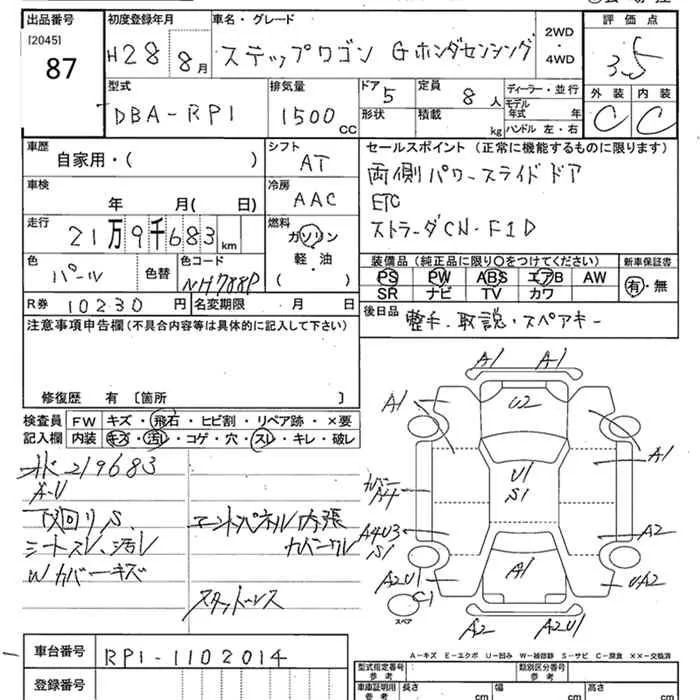 出品番号 初度登録年月 車名・グレード 評価点
[2045] 87 H28 8月 ステップワゴン Gホンダセンシング 2WD・4WD 3.5
外装 内装
C C
型式 排気量 ドア 定員 ディーラー・並行
DBA-RP1 1500 CC 5 8 人 モデル年式 年
形状 積載 kg ハンドル 左・右
車歴 シフト セールスポイント (正常に機能するものに限ります)
自家用・( ) AT 両側パワースライドドア
車検 冷房 ETC
年 月( 日) AAC ストラーダCN-F1D
走行 燃料
21万9千683 km ガソリン
軽・油
( )
色 色替 色コード 装備品 (純正品に限り○をつけてください) 新車保証書
パール NH788P PS PW ABS エアB AW 有・無
SR ナビ TV カワ
R券 10230 円 名変期限 月 日 後日品 整手、取説・スペアキー
注意事項申告欄 (不具合内容等は具体的に記入して下さい)
修復歴 有 〔箇所 〕
検査員 FW キズ・飛石・ヒビ割・リペア跡・×要
記入欄 内装 キズ・汚レ・コゲ・穴・スレ・キレ・破レ
219683
A-U
下回りS、
シートスレ、汚レ
Wカバーキズ
エンドパネル内張
カバーワレ
スタッドレス
A1 A1
A1 U2
A1
U1
S1
A4
A4U3
S1 A2
A2U1 A1 UA2
C1
スペア
A2 A2U1
A-キズ E-エクボ U-凹み W-補修跡 S-サビ C-腐食 ××-交換済
車台番号 RP1-1102014
登録番号
型式指定番号 参考 類別区分番号 参考
車庫証明用 参考 長さ cm 幅 cm 高さ cm